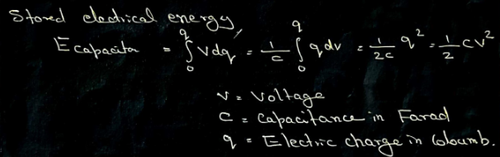 Stored electrical energy,
E capacita = ∫₀^q V dq′ = 1/c ∫₀^q q dv = 1/2c q² = 1/2 CV²
V = Voltage
C = Capacitance in Farad
q = Electric charge in Coloumb.